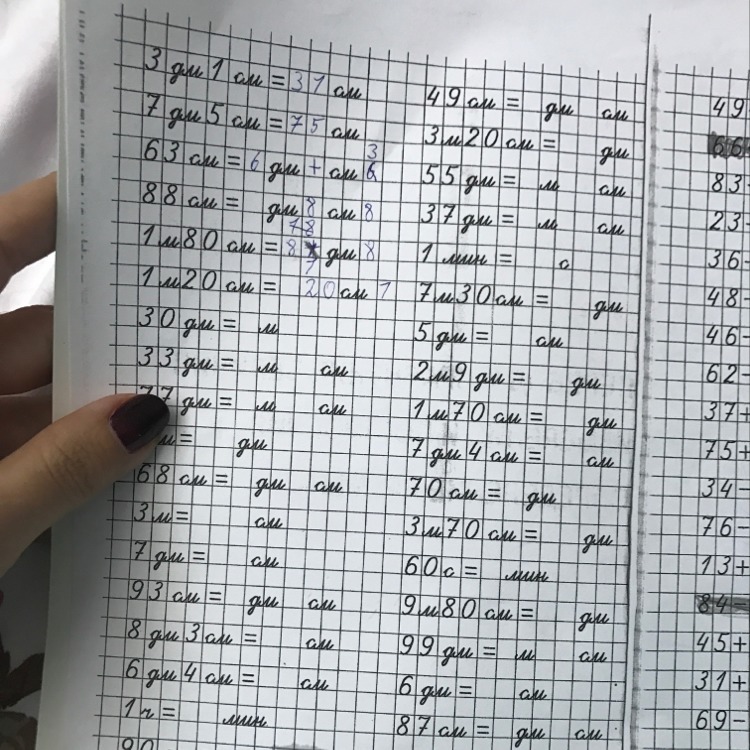 3 дм 1 см = 31 см
7 дм 5 см = 75 см
63 см = 6 дм + см 3
88 см = дм 8 см 8
1 м 80 см = дм 8
1 м 20 см = 20 см 1
30 дм = м
33 дм = м см
77 дм = м см
м = дм
68 см = дм см
3 м = см
7 дм = см
93 см = дм см
8 дм 3 см = см
6 дм 4 см = см
1 ч = мин
90
49 см = дм см
3 м 20 см = дм
55 дм = м см
37 дм = м см
1 мин = с
7 м 30 см = дм
5 дм = см
2 м 9 дм = дм
1 м 70 см = дм
7 дм 4 см = см
70 см = дм
3 м 70 см = дм
60 с = мин
9 м 80 см = дм
99 дм = м см
6 дм = см
87 см = дм см
49
66
83
23-
36-
48-
46-
62-
37+
75+
34-
76-
13+
84-
45+
31+
69-